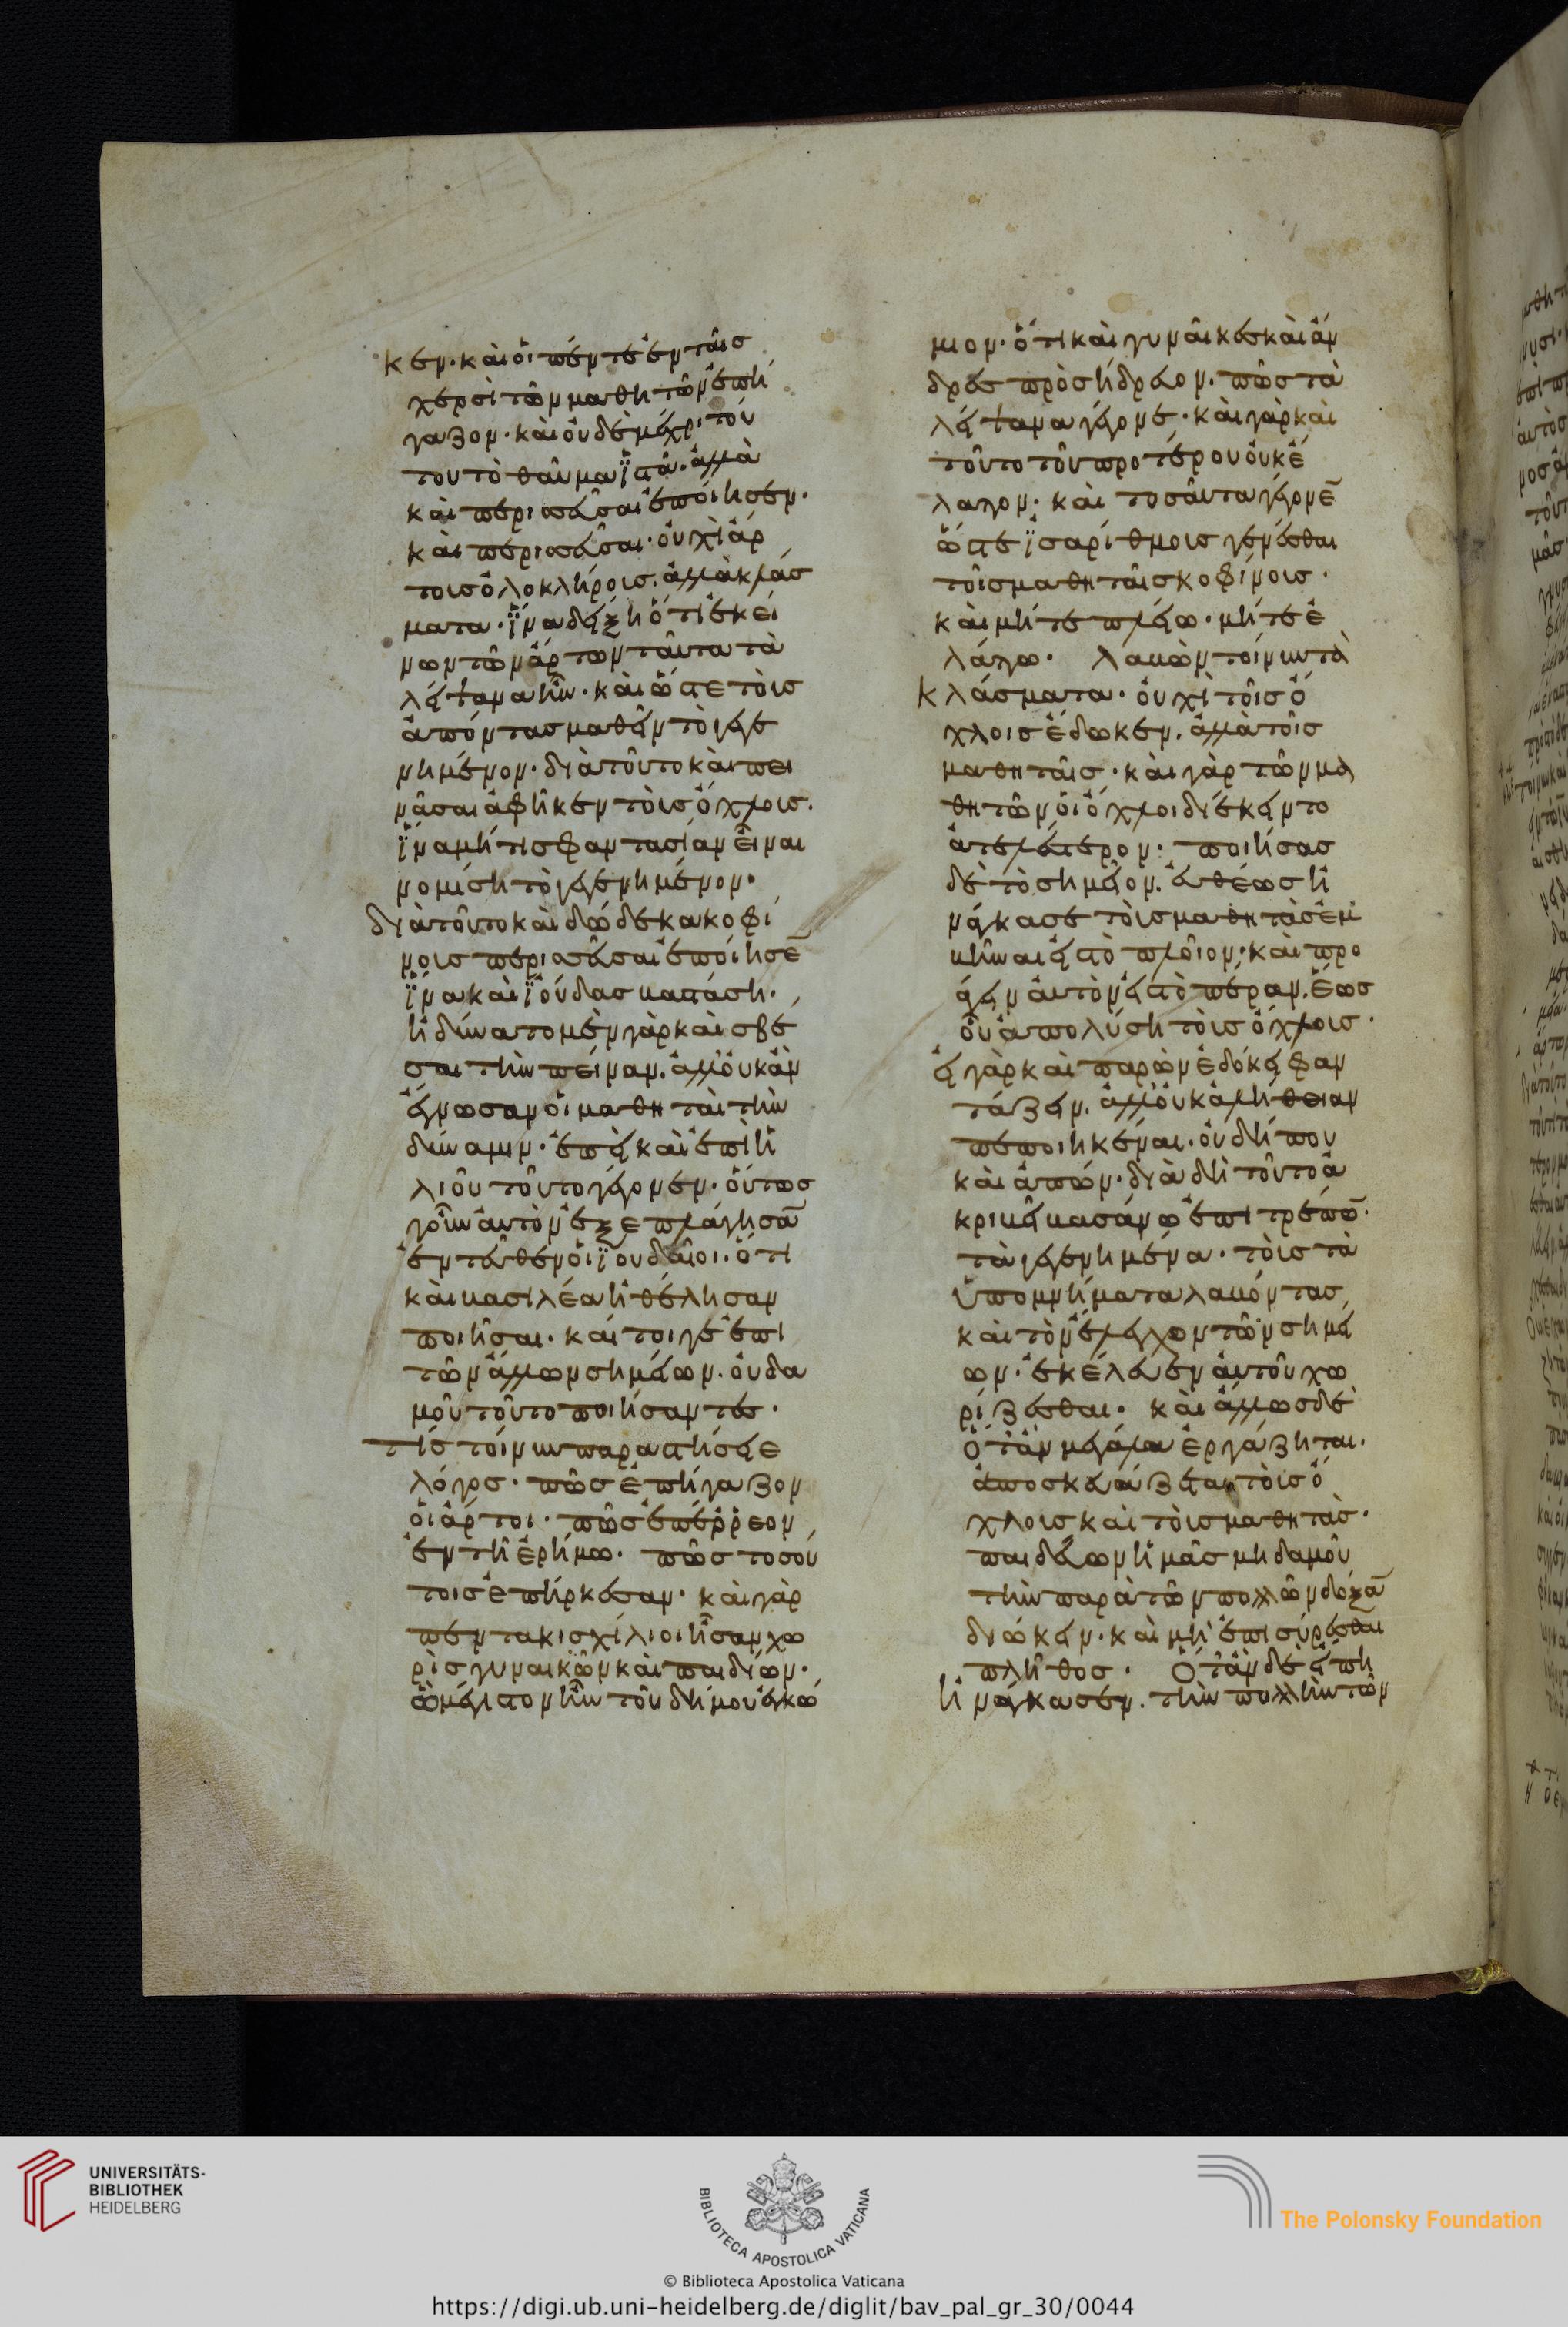 κεν· καὶ οἱ πέντε ἐν ταῖσ
χερσὶ τῶν μαθητῶν ἐπή
γαζον· καὶ οὐδὲ μέχρι τού
του τὸ θαῦμα ἵστα· ἀλλὰ
καὶ περισσεῦσαι ἐποίησεν·
καὶ περισσεῦσαι· οὐχὶ ἄρ
τοισ ὁλοκλήροισ· ἀλλὰ κλάσ
ματα· ἵνα δείξη ὅτι ἐκεί
νων τῶν ἄρτων ταῦτα τὰ
λείψανα ἦν· καὶ ὥστε τοὺσ
ἀπόντασ μαθεῖν τὸ γεγε
νημένον· διὰ τοῦτο καὶ πει
νᾶσαι ἀφῆκεν τοὺσ ὄχλουσ·
ἵνα μή τισ φαντασίαν εἶναι
νομίση τὸ γεγενημένον·
διὰ τοῦτο καὶ δώδεκα κοφί
νουσ περισσεῦσαι ἐποίησε̄
ἵνα καὶ ἰούδασ βαστάση·
ἠδύνατο μὲν γὰρ καὶ σβέ
σαι τὴν πεῖναν· ἀλλ' οὐκ ἂν
ἔγνωσαν οἱ μαθηταὶ τὴν
δύναμιν· ἐπεὶ καὶ ἐπὶ ἡ
λιοῦ τοῦτο γέγονεν· οὕτωσ
γοῦν αὐτὸν ἐξεπλάγησᾱ
ἐντεῦθεν οἱ ἰουδαῖοι· ὅτι
καὶ βασιλέα ἠθέλησαν
ποιῆσαι· καί τοι γε ἐπὶ
τῶν ἄλλων σημείων· οὐδα
μοῦ τοῦτο ποιήσαντεσ·
τίσ τοίνυν παραστήσειε
λόγοσ· πῶσ ἐπήγαζον
οἱ ἄρτοι· πῶσ ἐπέρρεον
ἐν τῆ ἐρήμω· πῶσ τοσού
τοισ ἐπήρκεσαν· καὶ γὰρ
πεντακισχίλιοι ἦσαν χω
ρὶσ γυναικῶν καὶ παιδίων·
ὃ μέγιστον ἦν τοῦ δήμου ἐγκώ
μιον· ὅτι καὶ γυναῖκεσ καὶ ἄν
δρεσ προσήδρευον· πῶσ τὰ
λείψανα γέγονε· καὶ γὰρ καὶ
τοῦτο τοῦ προτέρου οὐκ ἔ
λαττον· καὶ τοσαῦτα γέγονε̄
ὥστε ἰσαρίθμουσ γενέσθαι
τοῖσ μαθηταῖσ κοφίνουσ·
καὶ μήτε πλείω· μήτε ἐ
λάττω· λαβὼν τοίνυν τὰ
κλάσματα· οὐχὶ τοῖσ ὄ
χλοισ ἔδωκεν· ἀλλὰ τοῖσ
μαθηταῖσ· καὶ γὰρ τῶν μα
θητῶν οἱ ὄχλοι διέκειντο
ἀτελέστερον· ποιήσασ
δὲ τὸ σημεῖον· εὐθέωσ ἠ
νάγκασε τοὺσ μαθητὰσ ἐμ
βῆναι εἰσ τὸ πλοῖον· καὶ προ
άγειν αὐτὸν εἰσ τὸ πέραν· ἕωσ
οὗ ἀπολύση τοὺσ ὄχλουσ·
εἰ γὰρ καὶ παρὼν ἐδόκει φαν
τάζειν· ἀλλ' οὐκ ἀλήθειαν
πεποιηκέναι· οὐ δήπου
καὶ ἀπών· διὰ δὴ τοῦτο ἀ
κριβεῖ βασάνω ἐπιτρέπω̄·
τὰ γεγενημένα· τοὺσ τὰ
ὑπομνήματα λαβόντασ,
καὶ τὸν ἔλεγχον τῶν σημεί
ων· ἐκέλευεν αὐτοῦ χω
ρίζεσθαι· καὶ ἄλλωσ δὲ
ὅταν μεγάλα ἐργάζηται·
ἀποσκευάζεται τοὺσ ὄ
χλουσ καὶ τοὺσ μαθητάσ·
παιδεύων ἡμᾶσ μηδαμοῦ
τὴν παρὰ τῶν πολλῶν δόξᾱ
διώκειν· καὶ μὴ ἐπισύρεσθαι
πλῆθοσ· ὅταν δὲ εἴπη
ἠνάγκασεν· τὴν πολλὴν τῶν
UNIVERSITÄTS-
BIBLIOTHEK
HEIDELBERG
BIBLIOTECA APOSTOLICA VATICANA
The Polonsky Foundation
© Biblioteca Apostolica Vaticana
https://digi.ub.uni-heidelberg.de/diglit/bav_pal_gr_30/0044